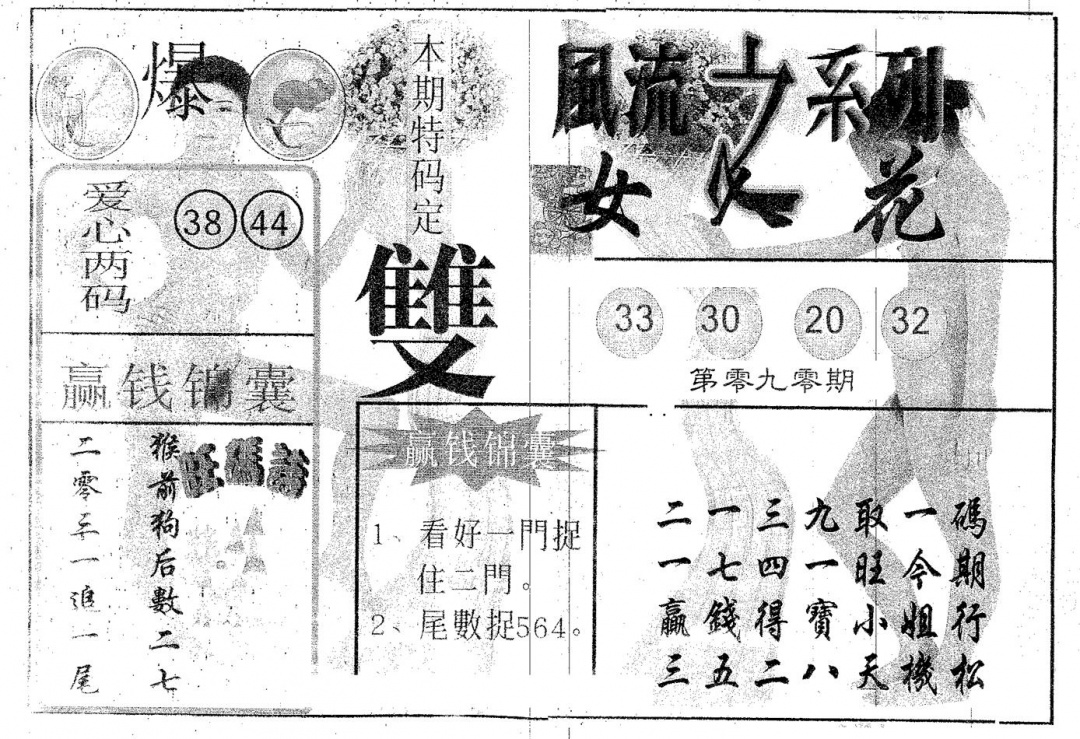 爆
爱心两码
38 44
赢钱锦囊
旺碼詩
猴前狗后數二七
二零三一追一尾
本期特码定
雙
赢钱锦囊
1、看好一門捉
住二門。
2、尾數捉564。
風流之系列
女人花
33 30 20 32
第零九零期
碼期行松
一今姐機
取旺小天
九一寶八
三四得二
一七錢五
二一贏三